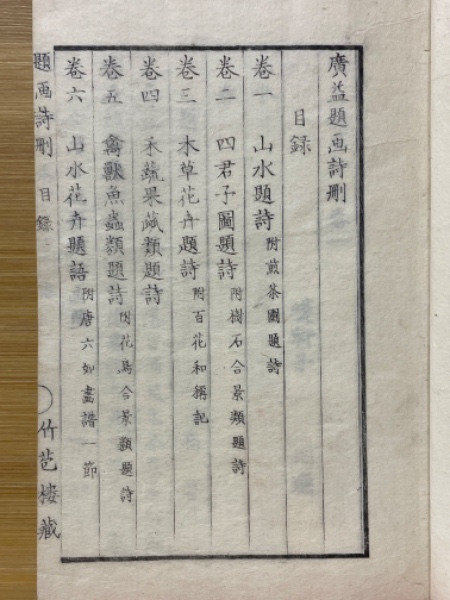 廣益題画詩刪
目录
卷一 山水題詩 附煎茶圖題詩
卷二 四君子圖題詩 附樹石合景類題詩
卷三 木草花卉題詩 附百花和稱記
卷四 禾蔬果蓏類題詩
卷五 禽獸魚蟲類題詩 附花鳥合景類題詩
卷六 山水花卉題語 附唐六如畫譜一節
題画詩刪 目録 竹苞樓藏